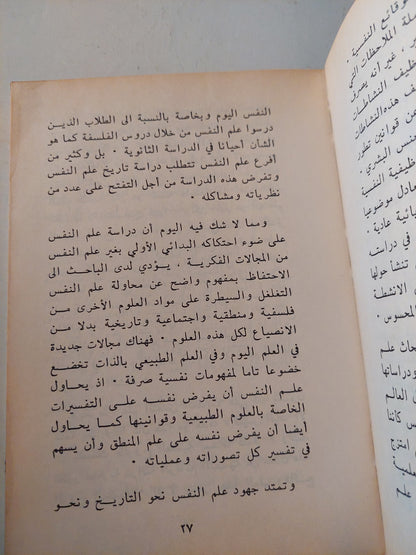 النفس اليوم وبخاصة بالنسبة الى الطلاب الذين
درسوا علم النفس من خلال دروس الفلسفة كما هو
الشأن أحيانا في الدراسة الثانوية . بل وكثير من
أفرع علم النفس تتطلب دراسة تاريخ علم النفس
وتفرض هذه الدراسة من أجل التفتح على عدد من
نظرياته ومشاكله .
ومما لا شك فيه اليوم أن دراسة علم النفس
على ضوء احتكاكه البدائي الأولي بغير علم النفس
من المجالات الفكرية . يؤدي لدى الباحث الى
الاحتفاظ بمفهوم واضح عن محاولة علم النفس
التغلغل والسيطرة على مواد العلوم الأخرى من
فلسفية ومنطقية واجتماعية وتاريخية بدلا من
الانصياع لكل هذه العلوم . فهناك مجالات جديدة
في العلم اليوم وفي العلم الطبيعي بالذات تخضع
خضوعا تاما لمفهومات نفسية صرفة . اذ يحاول
علم النفس أن يفرض نفسه على التفسيرات
الخاصة بالعلوم الطبيعية وقوانينها كما يحاول
أيضا أن يفرض نفسه على علم المنطق وأن يسهم
في تفسير كل تصوراته وعملياته .
وتمتد جهود علم النفس نحو التاريخ ونحو
٢٧
وقائع النفسية .
الملاحظات التي
غير أنه يصرف
النشاطات
هذه النشاطات
عن قوانين تطور
النفس البشري .
النفسية
موضوعيا
عادية .
في دراسته
تنشأ حولها
الانشطة
المحسوس .
علم
ودراساتها
العالم
كانتا
امتزج
علم